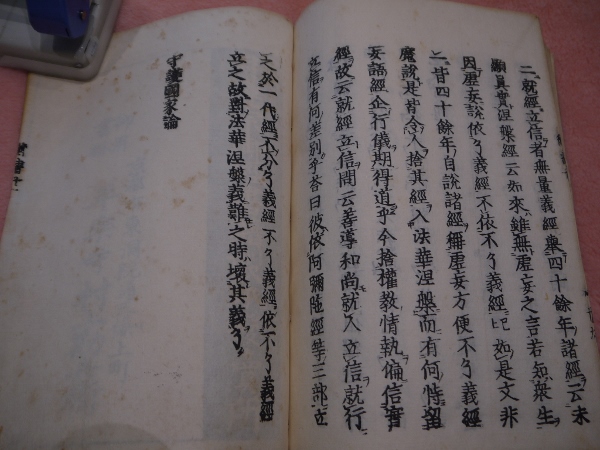 二就經立信者無量義經擧四十餘年諸經云未
顯眞實涅槃經云如來雖無虛妄之言若知衆生
因虛妄說依了義經不依不了義經已上如是文非
一昔四十餘年自說諸經稱虛妄方便不了義經
魔說是皆令人捨其經入法華涅槃而有何恃留
妄語經企行儀期得道乎今捨權教情執偏信實
經故云就經立信問云善導和尚就人立信就行
立信有何差別乎答曰彼依阿彌陀經等三部立
之於一代經不分了義經不了義經依不了義經
立之故對法華涅槃義難之時壞其義了
守護國家論